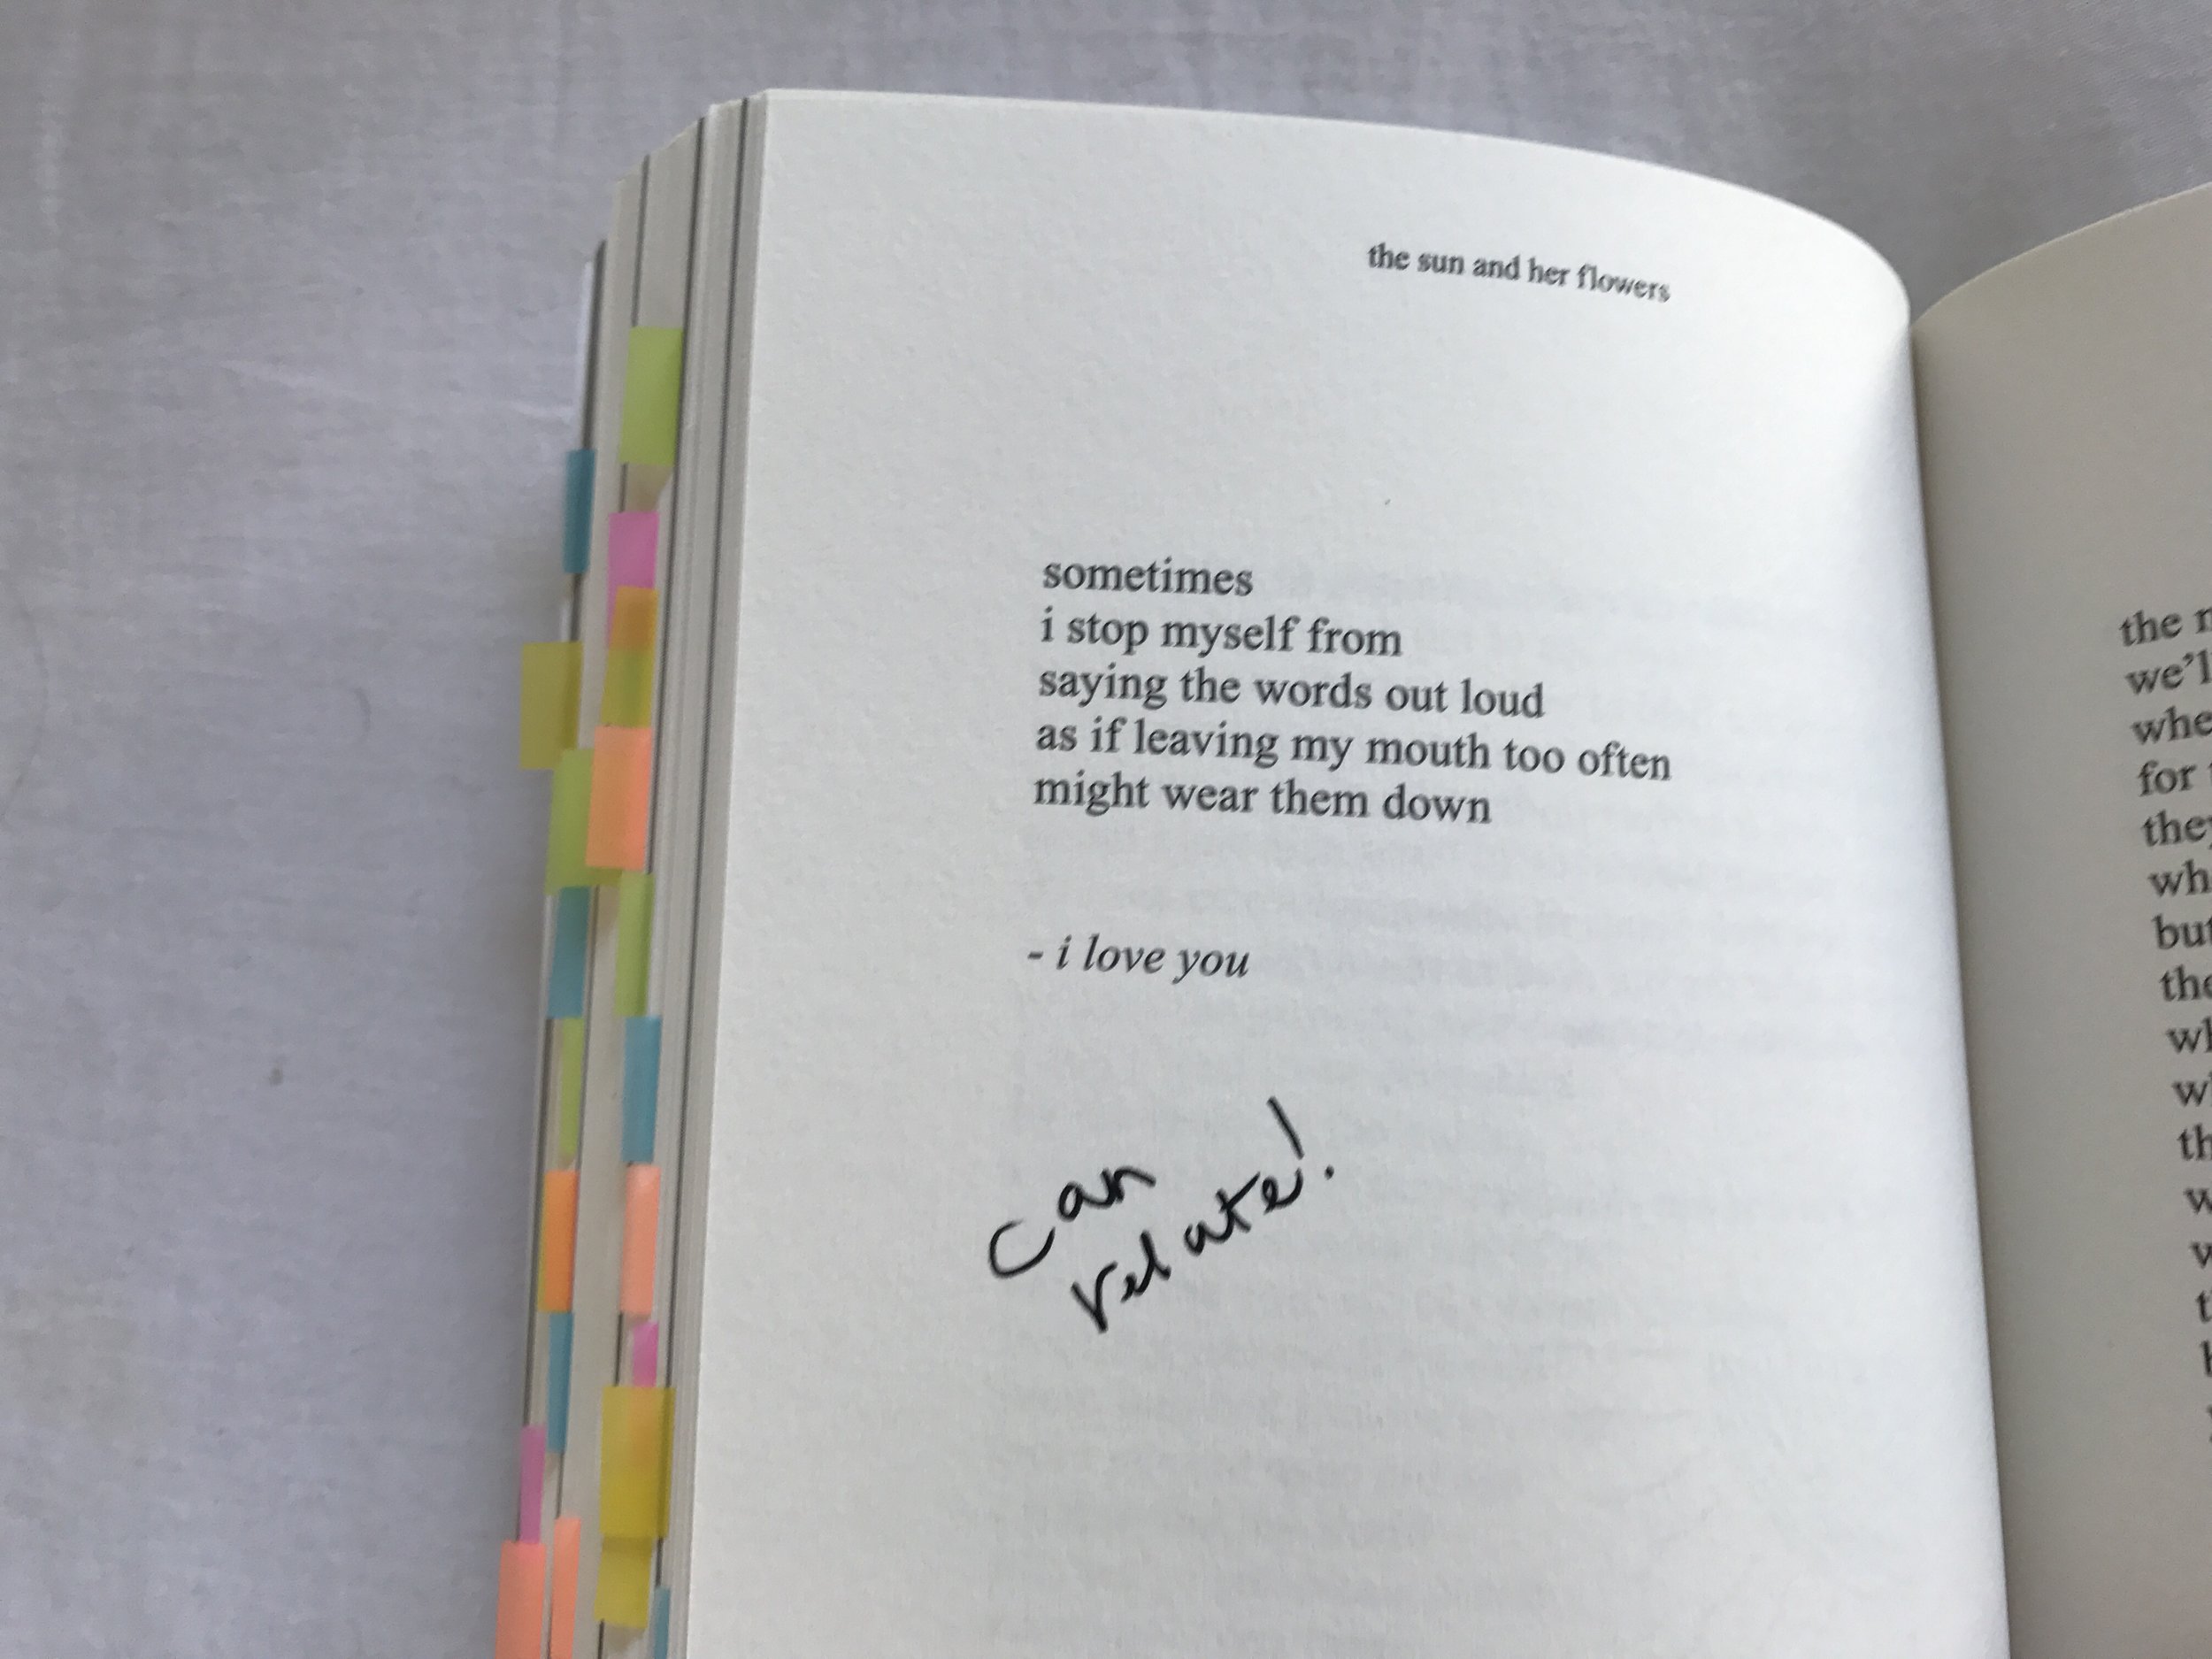 the sun and her flowers
sometimes
i stop myself from
saying the words out loud
as if leaving my mouth too often
might wear them down
- i love you
can
relate!
the
we'll
for
they
but